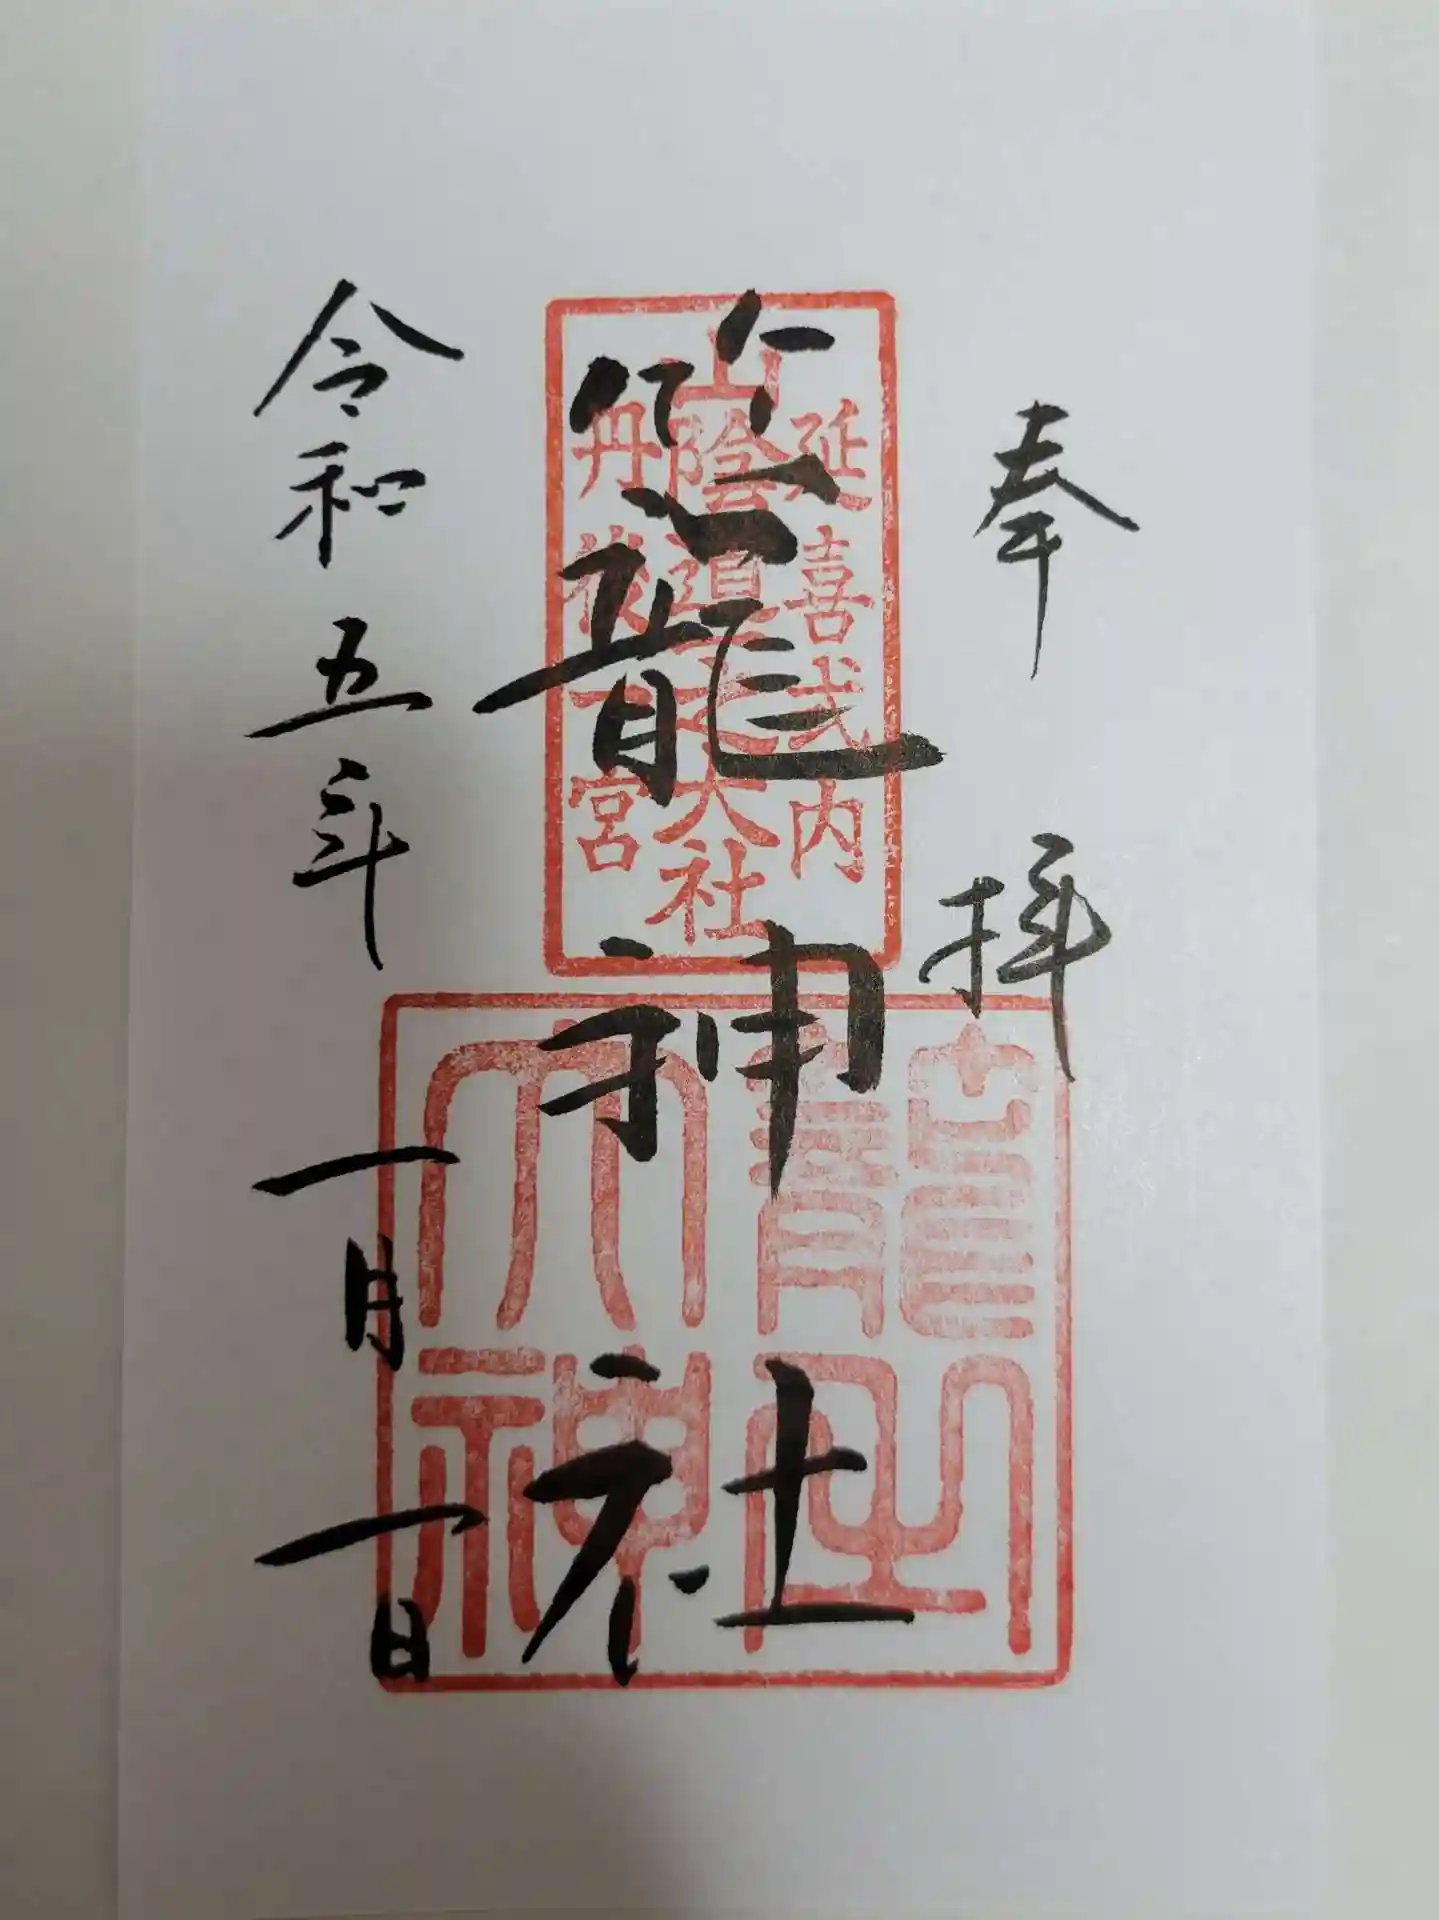 奉拝
延喜式内
山陰道一之大社
丹後一宮
籠神社
令和五年一月一日